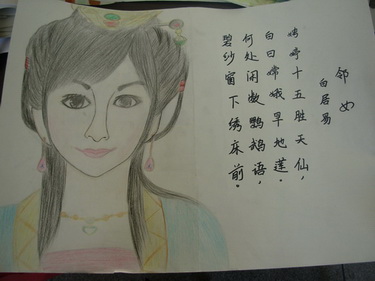 邻女
白居易
娉婷十五胜天仙，
白日嫦娥旱地莲。
何处闲教鹦鹉语，
碧纱窗下绣床前。